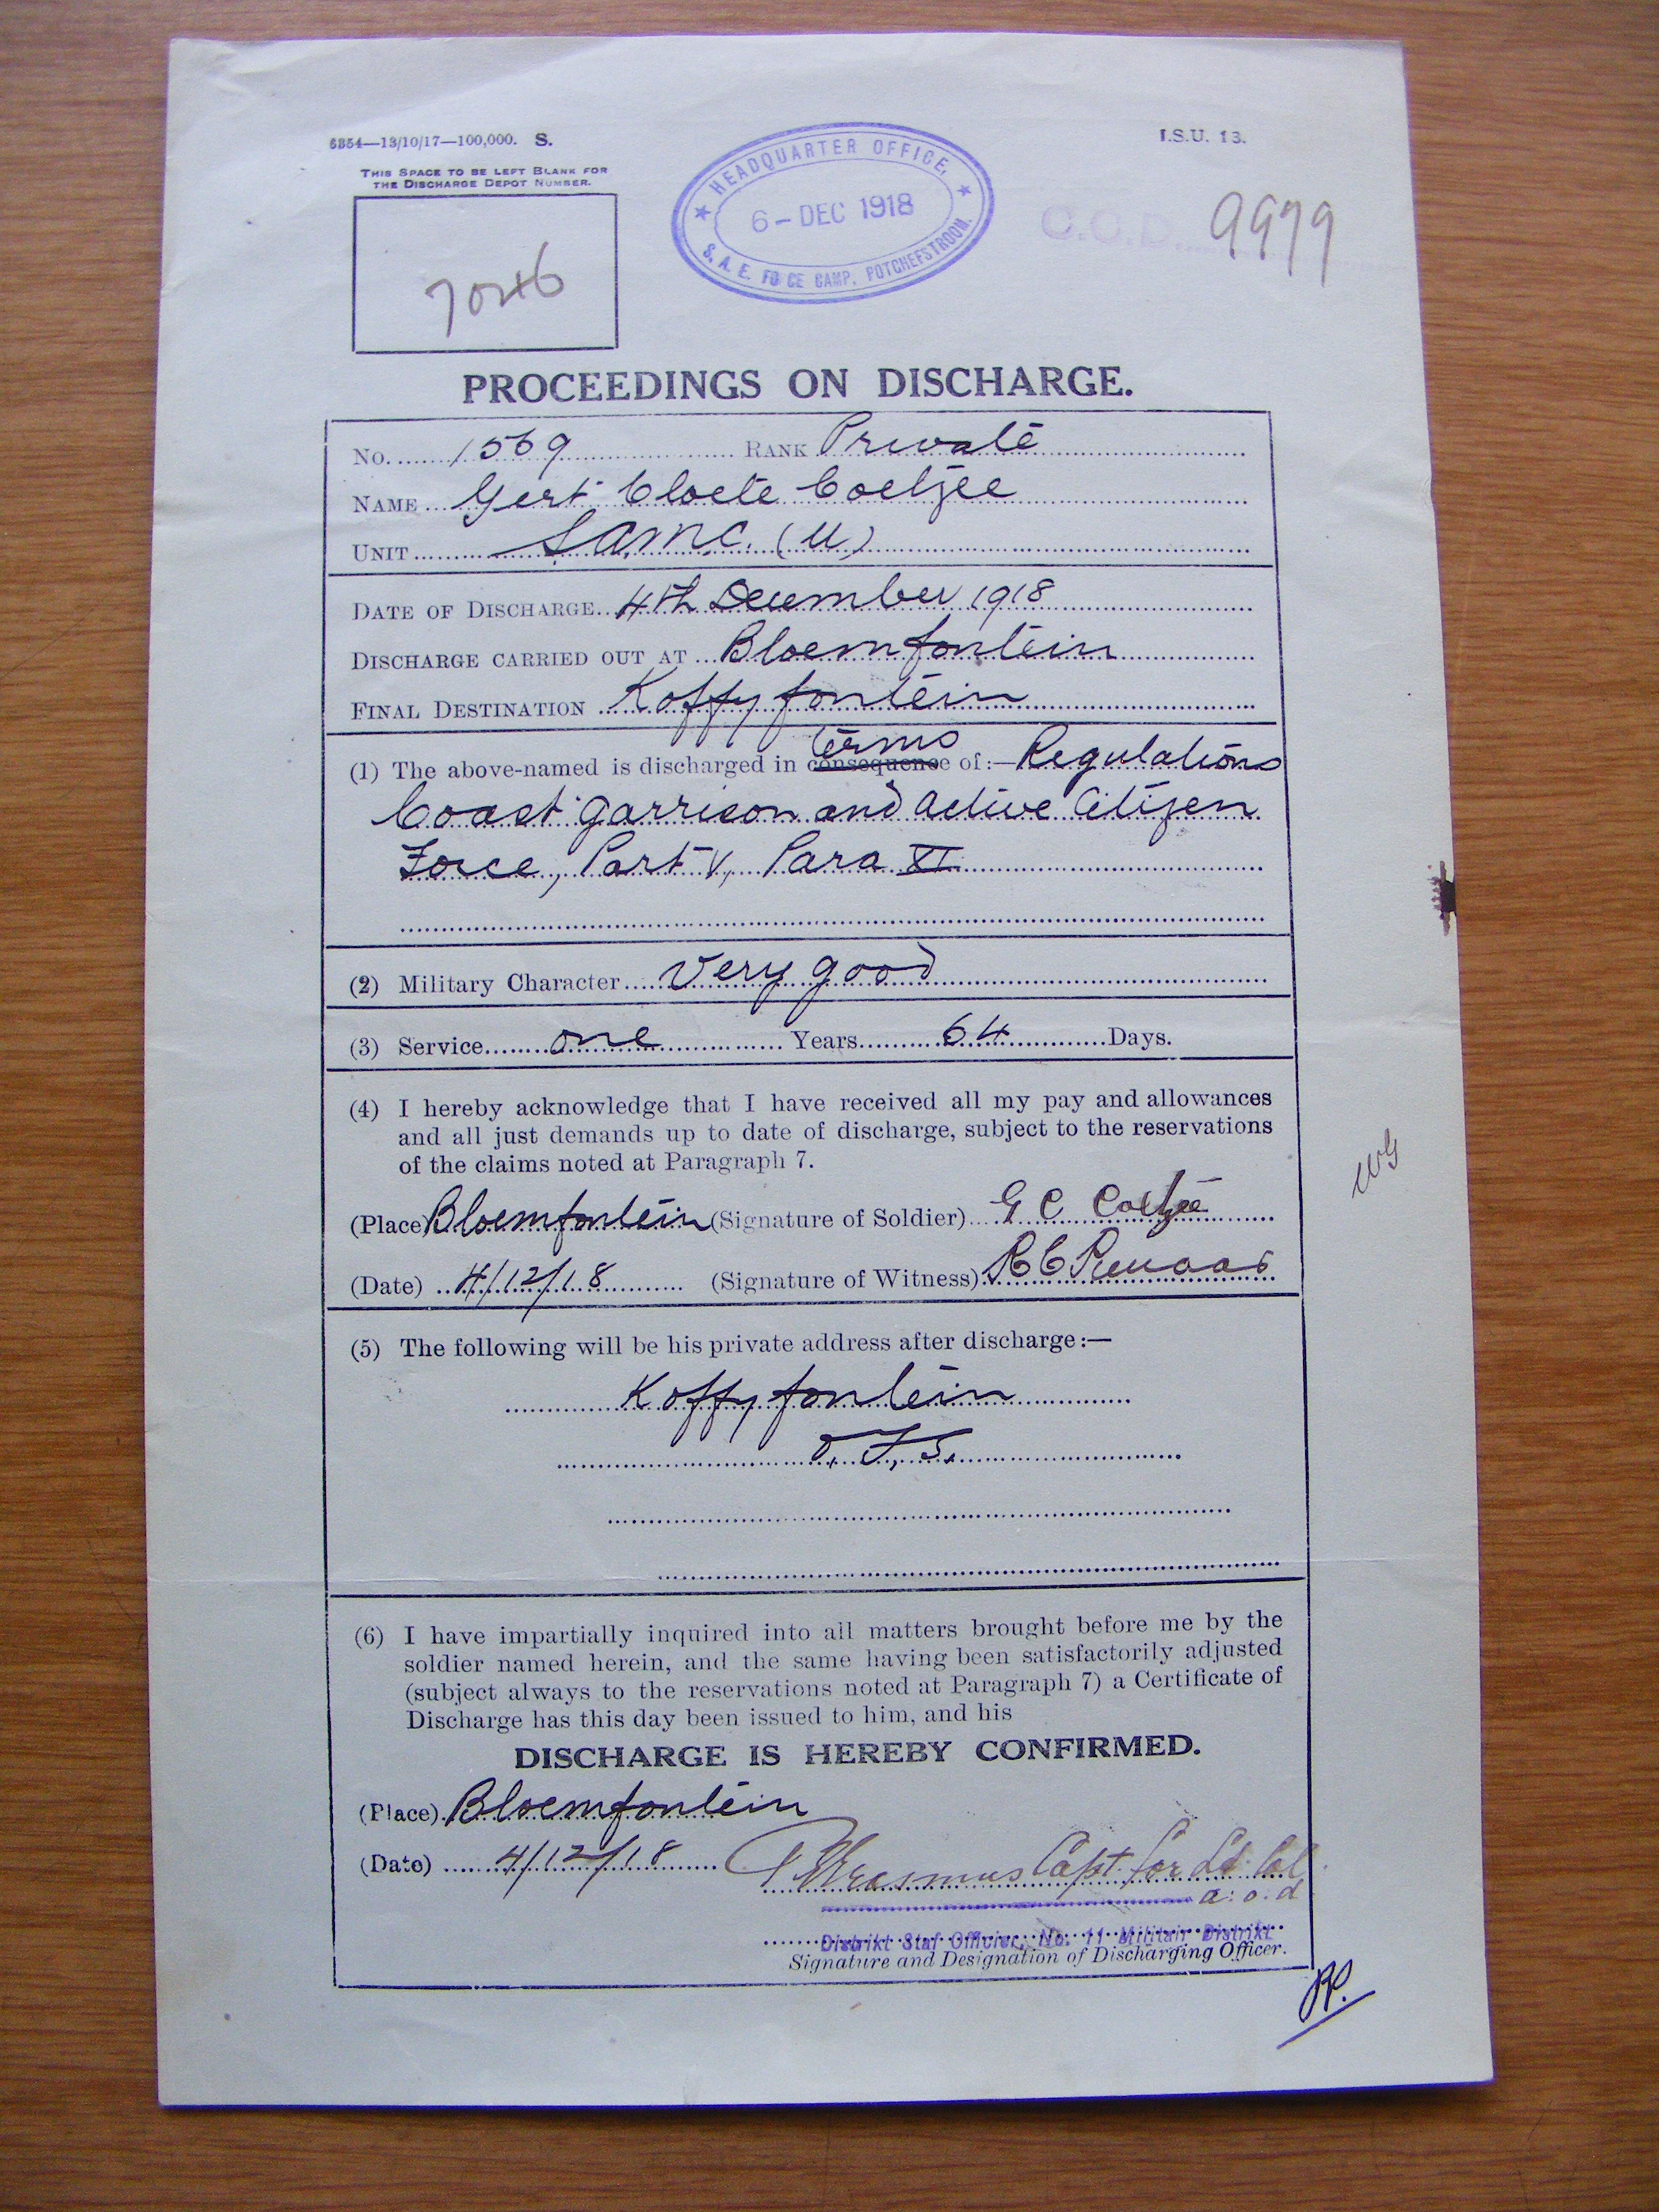 6354—13/10/17—100,000. S.
I.S.U. 13.
THIS SPACE TO BE LEFT BLANK FOR
THE DISCHARGE DEPOT NUMBER.
HEADQUARTER OFFICE,
6 - DEC 1918
S. A. E. FO CE CAMP, POTCHEFSTROOM.
C.C.D... 9979
7046
PROCEEDINGS ON DISCHARGE.
No. 1569 RANK Private
NAME Gert Cloete Coetzee
UNIT S.A.M.C. (U)
DATE OF DISCHARGE 4th December 1918
DISCHARGE CARRIED OUT AT Bloemfontein
FINAL DESTINATION Koffyfontein
terms
(1) The above-named is discharged in consequence of:— Regulations
Coast Garrison and Active Citizen
Force, Part V, Para XI
(2) Military Character Very good
(3) Service one Years 64 Days.
(4) I hereby acknowledge that I have received all my pay and allowances
and all just demands up to date of discharge, subject to the reservations
of the claims noted at Paragraph 7.
(Place) Bloemfontein (Signature of Soldier) G C Coetzee
(Date) 4/12/18 (Signature of Witness)
(5) The following will be his private address after discharge:—
Koffyfontein
O.F.S.
(6) I have impartially inquired into all matters brought before me by the
soldier named herein, and the same having been satisfactorily adjusted
(subject always to the reservations noted at Paragraph 7) a Certificate of
Discharge has this day been issued to him, and his
DISCHARGE IS HEREBY CONFIRMED.
(Place) Bloemfontein
(Date) 4/12/18 Erasmus Capt. for Lt. Col.
a.o.d
Distrikt Staf Officier, No. 11 Militair Distrikt
Signature and Designation of Discharging Officer.